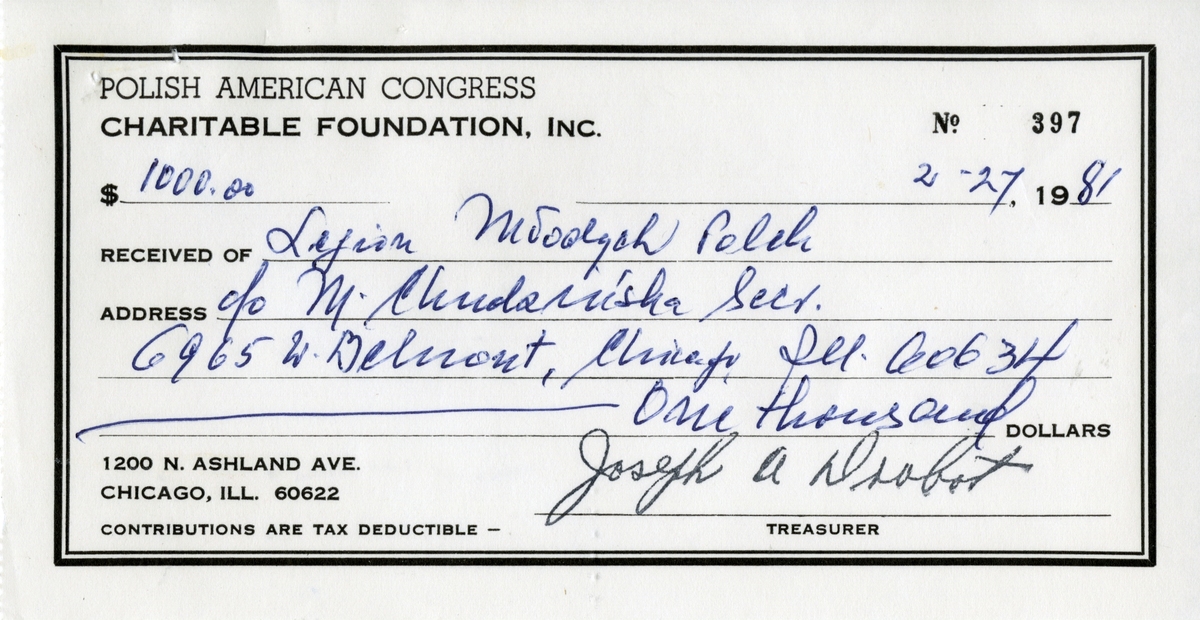 POLISH AMERICAN CONGRESS
CHARITABLE FOUNDATION, INC.
Nº 397
$ 1000.00 2-27, 1981
RECEIVED OF Legion Młodych Polek
ADDRESS c/o M. Chudzinska Secr.
6965 W. Belmont, Chicago Ill. 60634
One thousand DOLLARS
1200 N. ASHLAND AVE.
CHICAGO, ILL. 60622
Joseph A Drobot
CONTRIBUTIONS ARE TAX DEDUCTIBLE — TREASURER